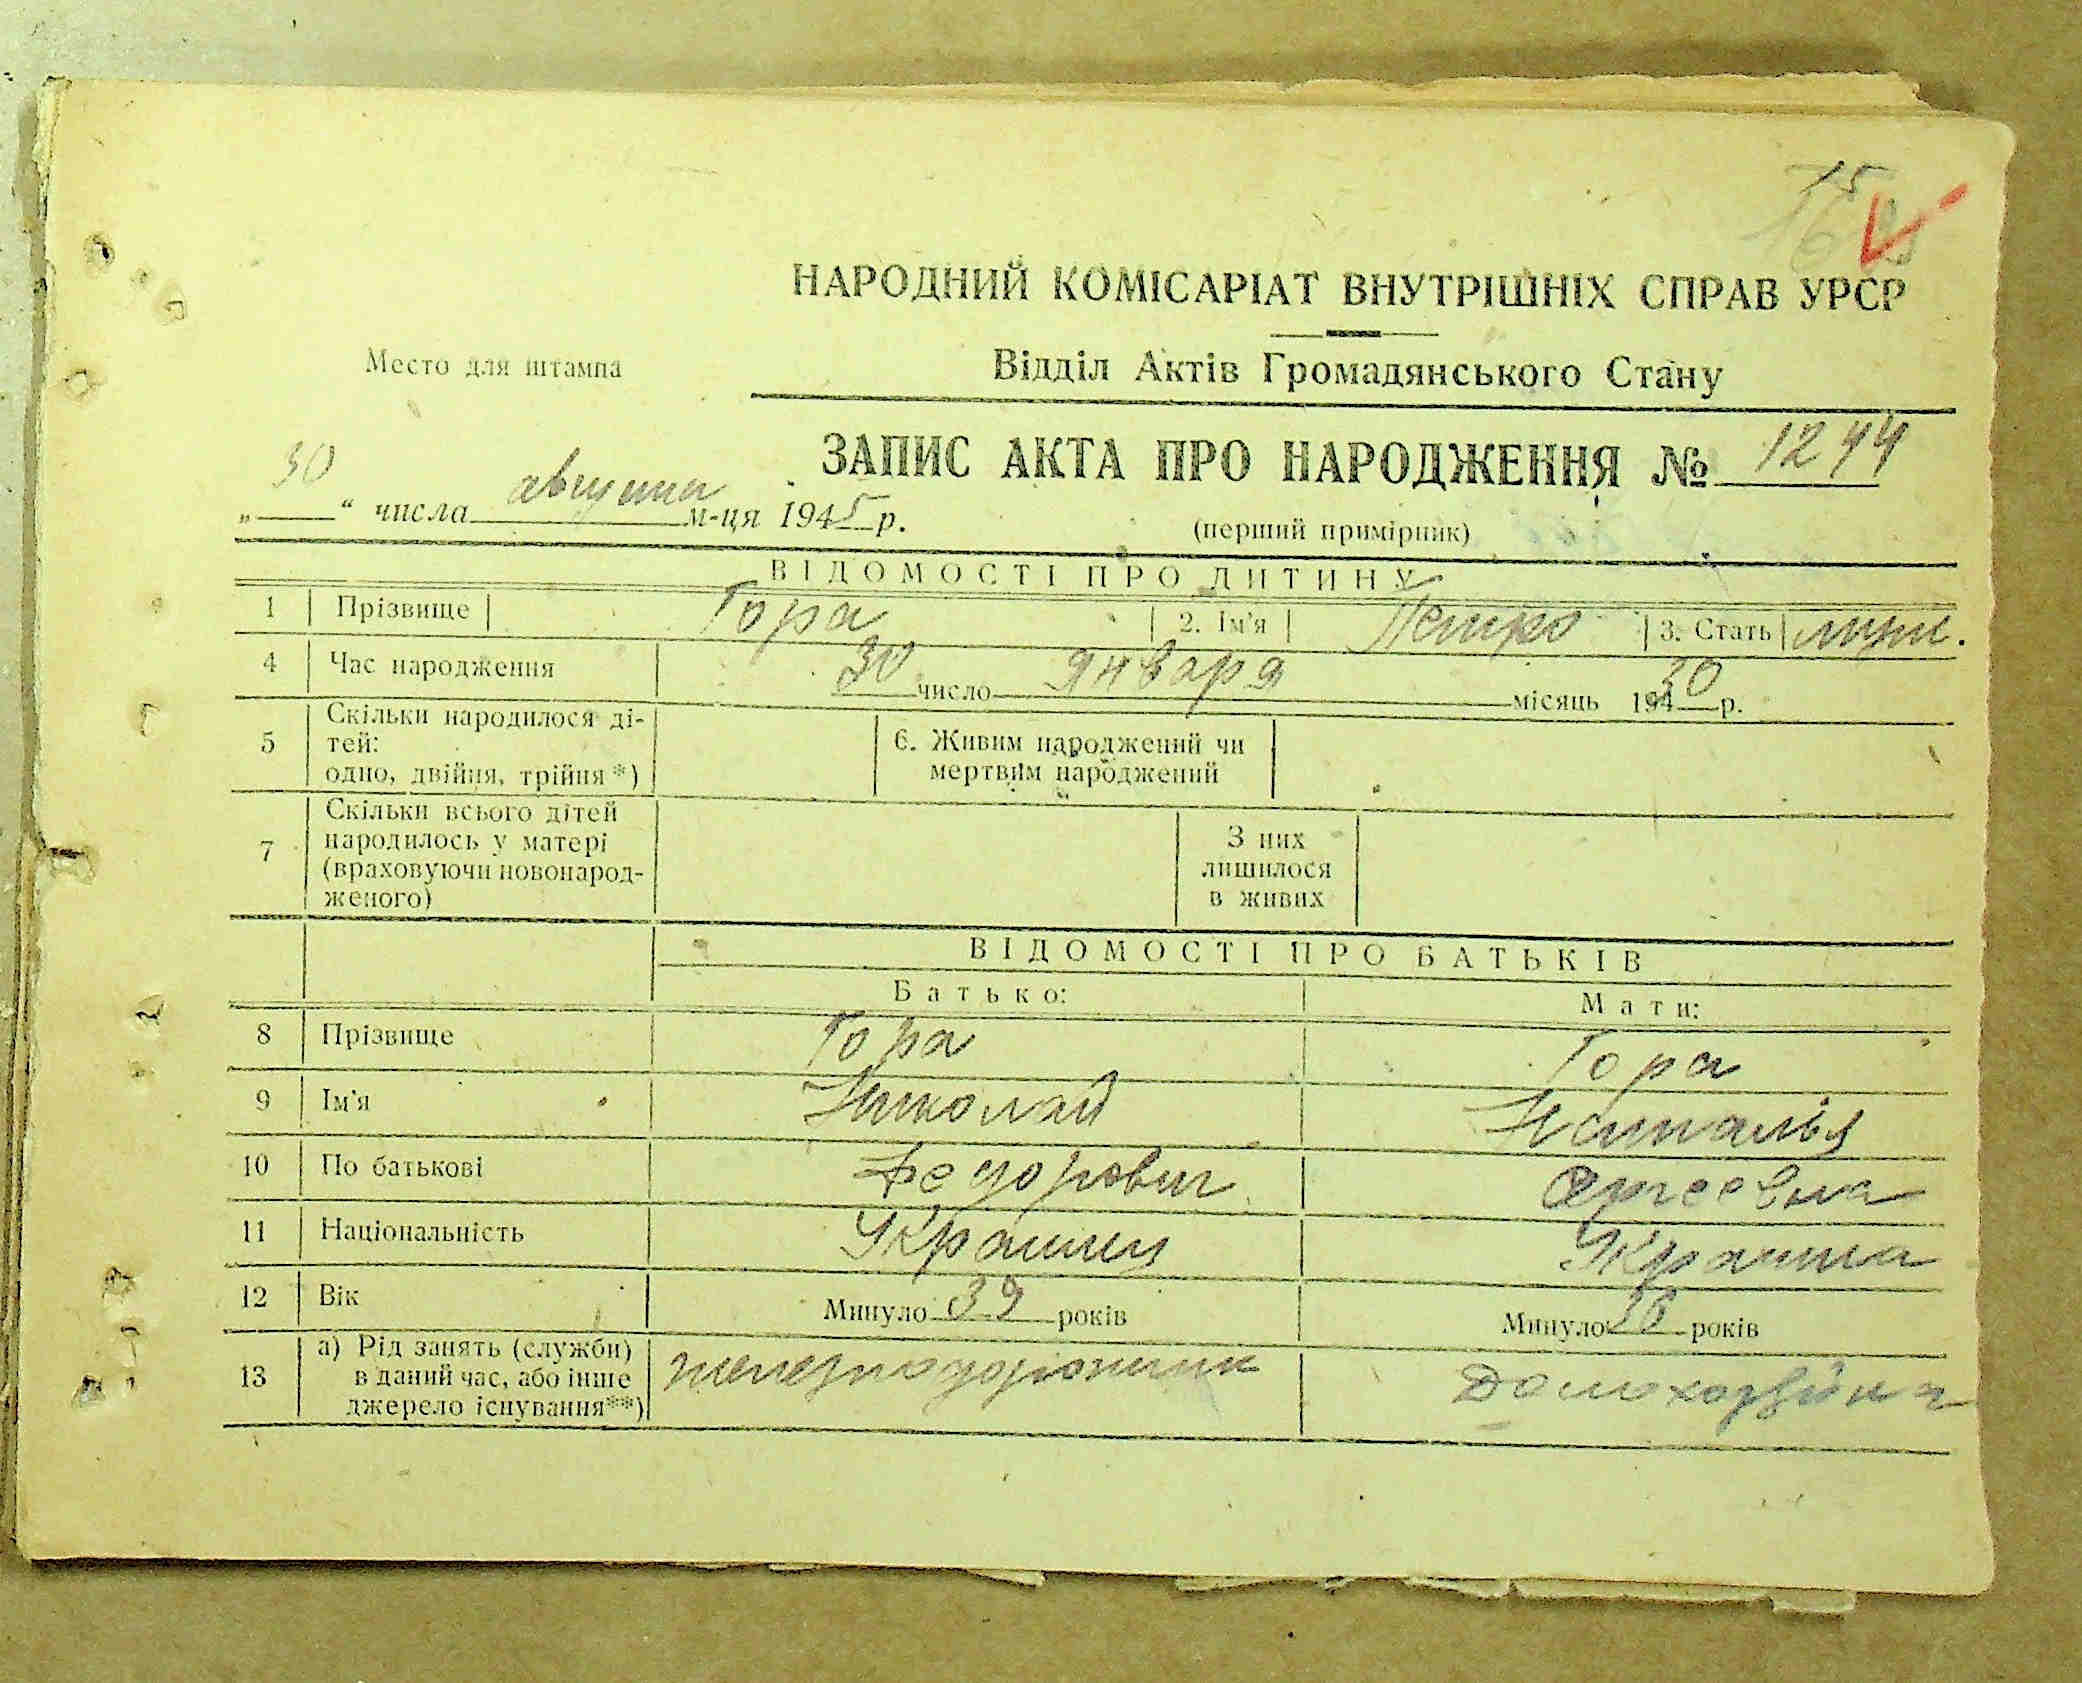 15
НАРОДНИЙ КОМІСАРІАТ ВНУТРІШНІХ СПРАВ УРСР
Место для штампа
Відділ Актів Громадянського Стану
ЗАПИС АКТА ПРО НАРОДЖЕННЯ № 1244
„30“ числа августа м-ця 1945 р.
(перший примірник)
ВІДОМОСТІ ПРО ДИТИНУ
1 Прізвище Гора 2. Ім'я Петро 3. Стать муж.
4 Час народження 30 число января місяць 1930 р.
5 Скільки народилося ді-
тей:
одно, двійня, трійня*)
6. Живим народжений чи
мертвим народжений
7 Скільки всього дітей
народилось у матері
(враховуючи новонарод-
женого)
З них
лишилося
в живих
ВІДОМОСТІ ПРО БАТЬКІВ
Батько: Мати:
8 Прізвище Гора Гора
9 Ім'я Николай Наталья
10 По батькові Федорович Сергеевна
11 Національність Украинец Украинка
12 Вік Минуло 39 років Минуло 36 років
13 а) Рід занять (служби)
в даний час, або інше
джерело існування**)
железнодорожник Домохозяйка